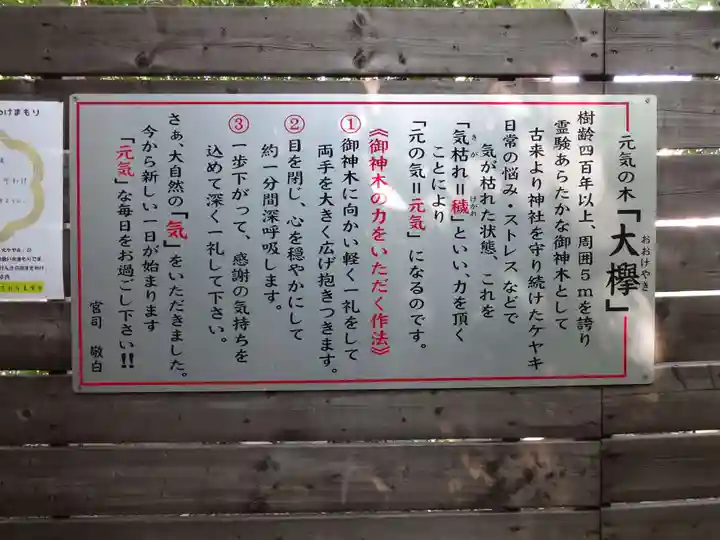 元気の木「大欅」
おおけやき
樹齢四百年以上、周囲5mを誇り
霊験あらたかな御神木として
古来より神社を守り続けたケヤキ
日常の悩み・ストレスなどで
気が枯れた状態、これを
「気枯れ=穢」といい力を頂く
きが
けがれ
ことにより
「元の気=元気」になるのです。
《御神木の力をいただく作法》
① 御神木に向かい軽く一礼をして
両手を大きく広げ抱きつきます。
② 目を閉じ、心を穏やかにして
約一分間深呼吸します。
③ 一歩下がって、感謝の気持ちを
込めて深く一礼して下さい。
さぁ、大自然の「気」をいただきました。
今から新しい一日が始まります
「元気」な毎日をお過ごし下さい!!
宮司 敬白
けまもり